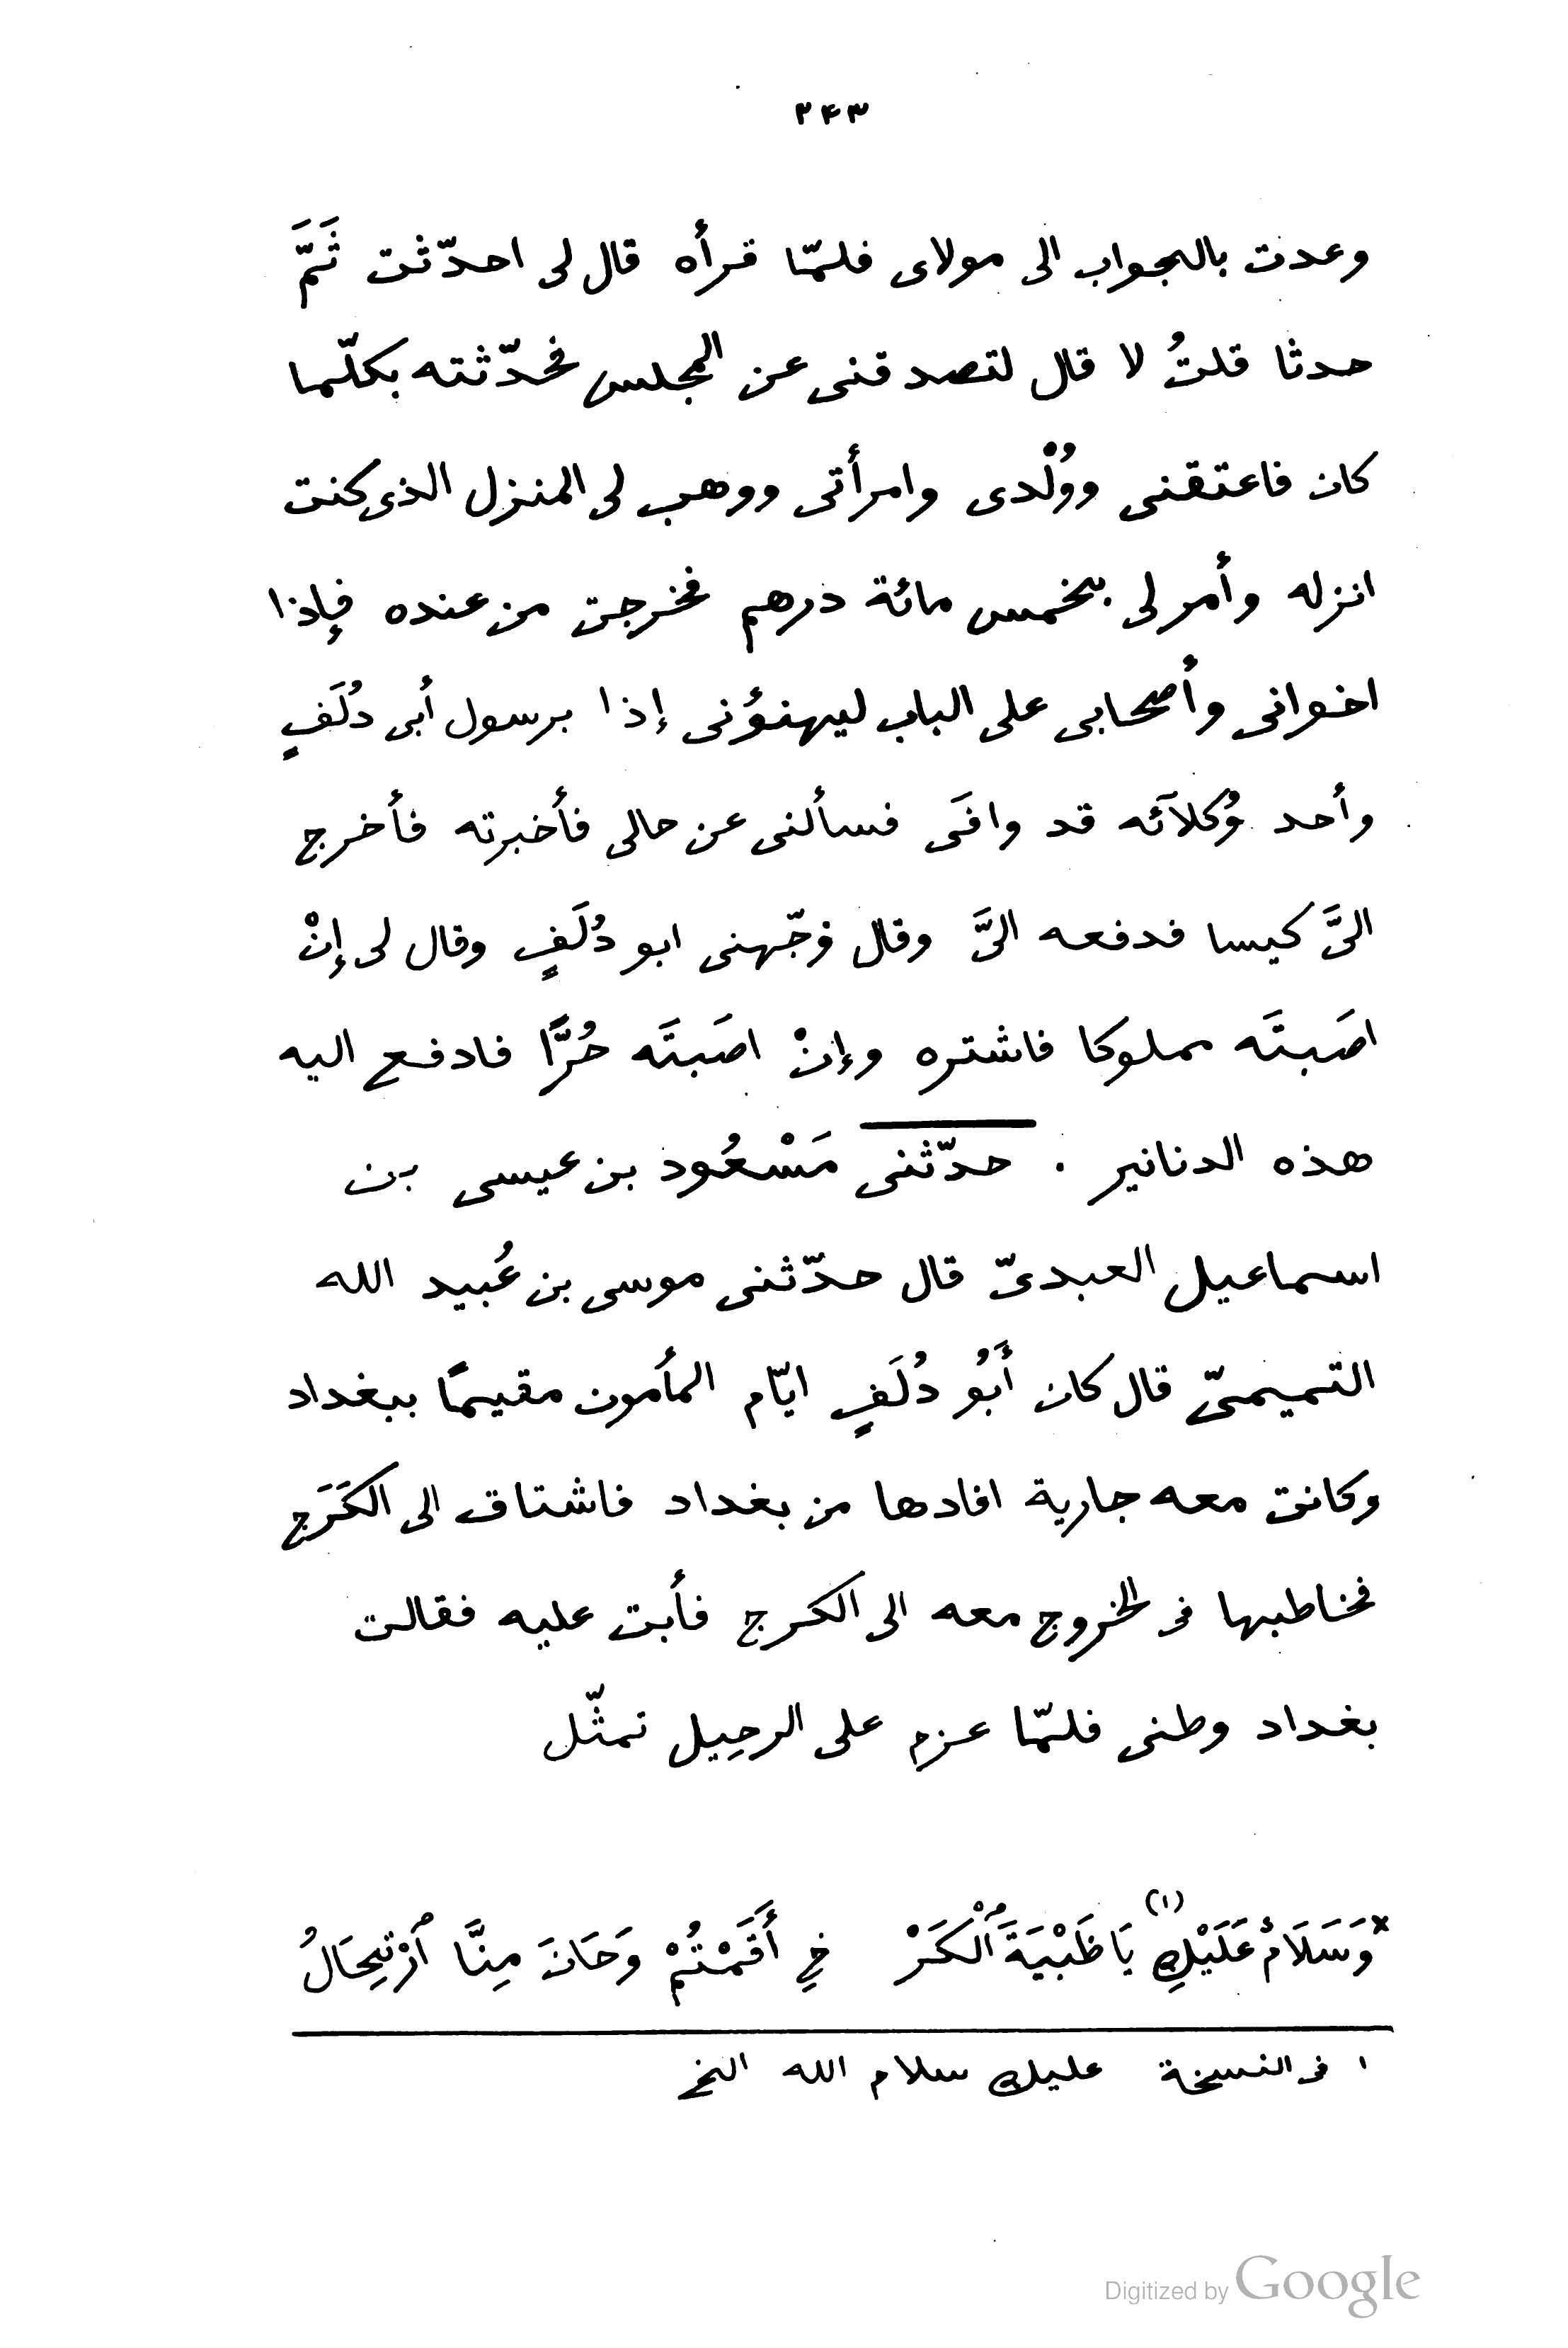 ٢٤٣
وعدت بالجواب الى مولاى فلمّا قرأه قال لى احدّثت ثَمَّ
حدثا قلتُ لا قال لتصدقنى عن المجلس فحدّثته بكلّما
كان فاعتقنى ووُلْدى وامرأتى ووهب لى المنزل الذى كنت
انزله وأمر لى بخمس مائة درهم فخرجت من عنده فإذا
اخوانى وأصحابى على الباب ليهنؤنى إذا برسول أبى دُلَفٍ
وأحد وُكلآئه قد وافَى فسألنى عن حالى فأخبرته فأخرج
الىَّ كيسا فدفعه الىَّ وقال وَجّهنى ابو دُلَفٍ وقال لى إنْ
اصَبتَه مملوكا فاشتره وإنْ اصَبتَه حُرًّا فادفع اليه
هذه الدنانير . حدّثنى مَسْعُود بن عيسى بن
اسماعيل العبدىّ قال حدّثنى موسى بن عُبيد الله
التميمىّ قال كان أَبُو دُلَفٍ ايّام المأمون مقيمًا ببغداد
وكانت معه جارية افادها من بغداد فاشتاق الى الكَرَج
فخاطبها فى الخروج معه الى الكرج فأبت عليه فقالت
بغداد وطنى فلمّا عزم على الرحِيل تمثّل
*وَسَلَامٌ عَلَيْكِ (١) يَا ظَبْيَةَ ٱلْكَرْ خِ أَقَمْتُمْ وَحَانَ مِنَّا ٱرْتِحَالُ
١ فى النسخة عليك سلام الله الخ
Digitized by Google